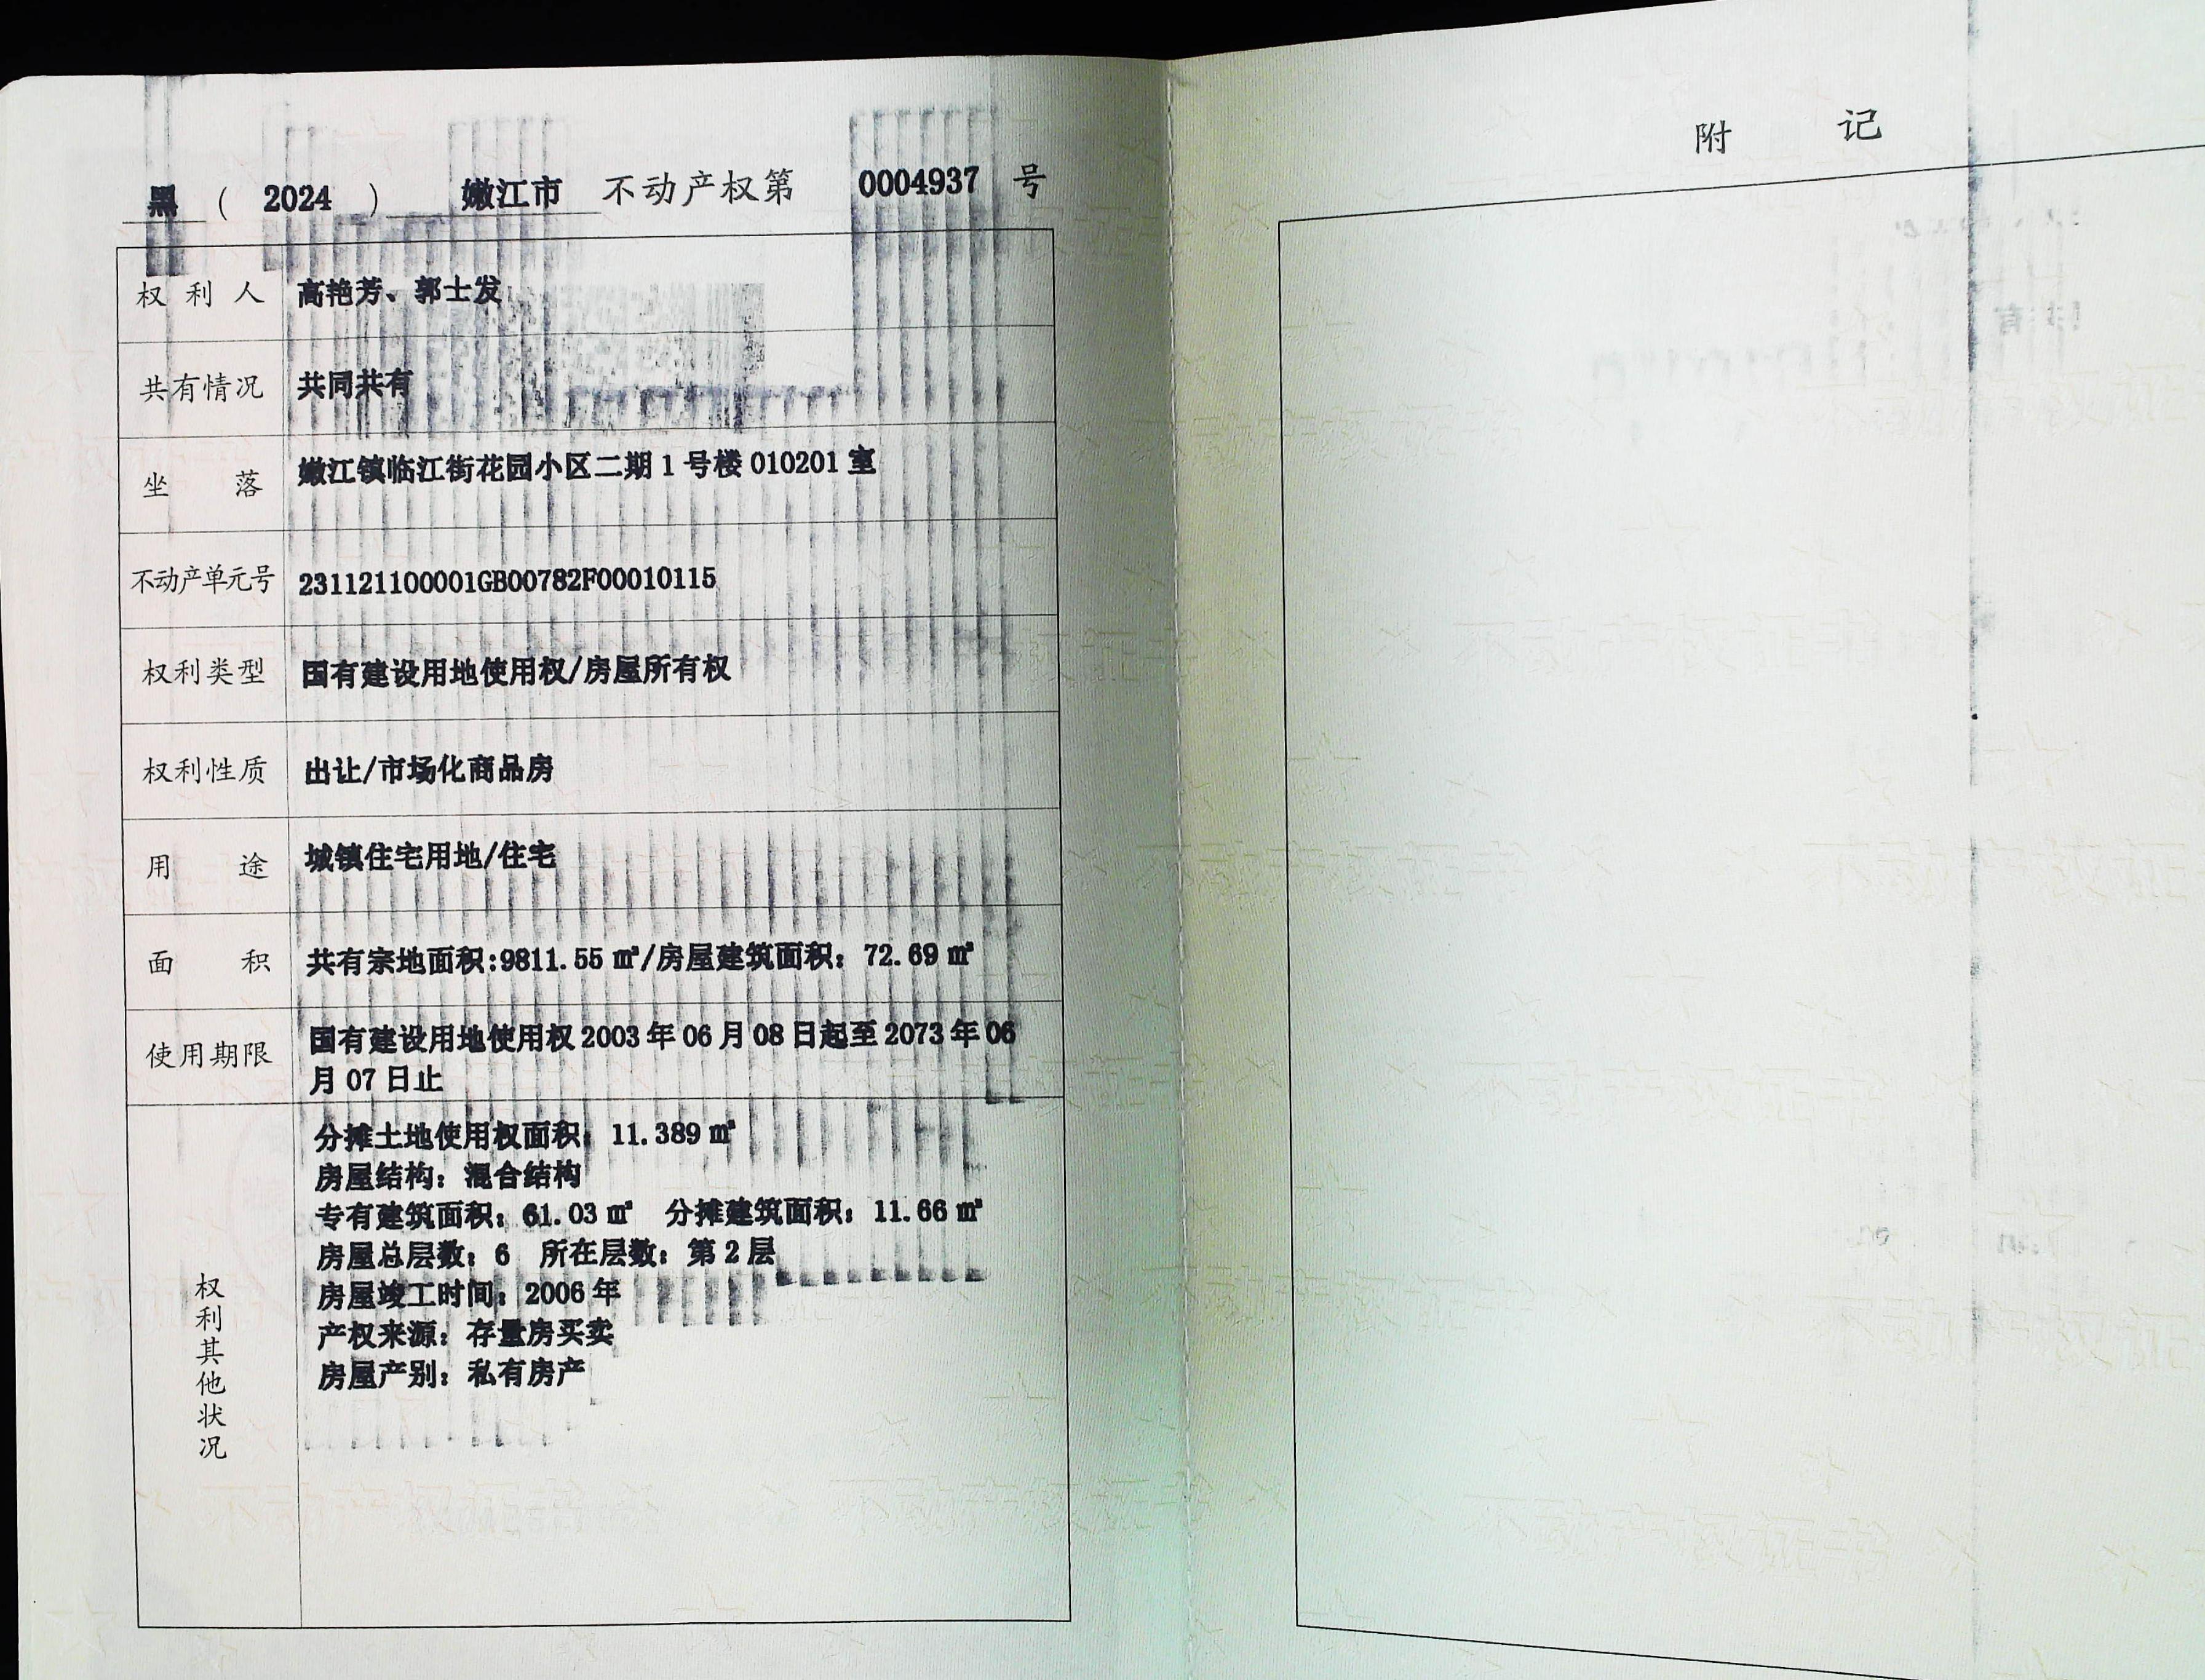 黑（2024）嫩江市不动产权第0004937号
权利人 高艳芳、郭士发
共有情况 共同共有
坐落 嫩江镇临江街花园小区二期1号楼010201室
不动产单元号 231121100001GB00782F00010115
权利类型 国有建设用地使用权/房屋所有权
权利性质 出让/市场化商品房
用途 城镇住宅用地/住宅
面积 共有宗地面积:9811.55㎡/房屋建筑面积：72.69㎡
使用期限 国有建设用地使用权2003年06月08日起至2073年06
月07日止
权利其他状况
分摊土地使用权面积：11.389㎡
房屋结构：混合结构
专有建筑面积：61.03㎡ 分摊建筑面积：11.66㎡
房屋总层数：6 所在层数：第2层
房屋竣工时间：2006年
产权来源：存量房买卖
房屋产别：私有房产
附记